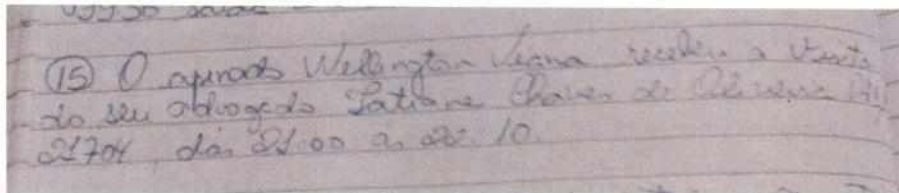 (15) O apenado Wellington Viana recebeu a visita
do seu advogado Tatiane Chaves de Oliveira
21704, das 21:00 as 22:10